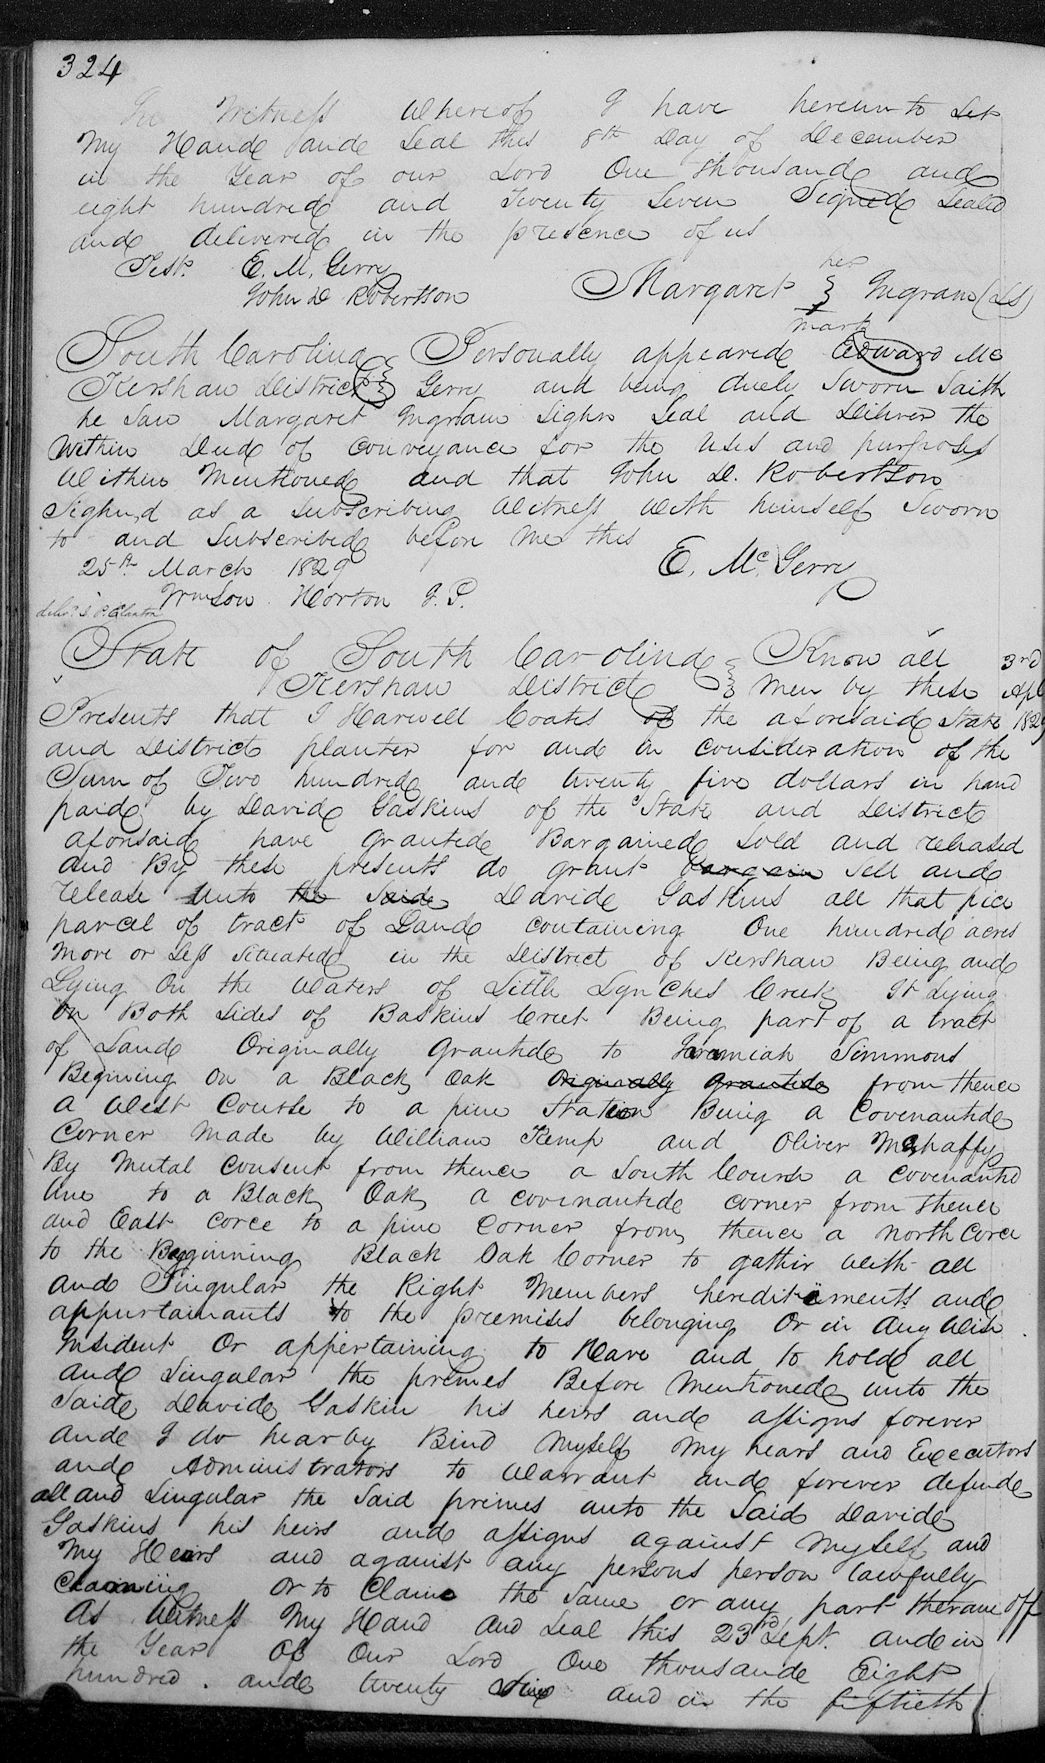 324
In Witness Whereof I have hereunto Set
My Hande ande Seal this 8th Day of December
in the Year of our Lord One thousande and
eight hundred and Twenty Seven Signed Sealed
ande delivered in the presence of us
Test. E. M. Gerry
John D Robertson
her
Margaret } Ingram (LS)
mark
South Carolina } Personally appeared Edward Mc
Kershaw District } Gerry and being duely Sworn Saith
he Saw Margaret Ingram Sighn Seal and Deliver the
Within Deed of Conveyance for the Uses and purposes
Within Mentioned and that John D. Robertson
Sighn,d as a Subscribing Witness With himself Sworn
to and Subscribed before Me this
25th March 1829
E. Mc Gerry
Wmson Horton J. P.
State of South Carolina } Know all
Kershaw District } Men by these
3rd
Apl
1829
Presents that I Harwell Coats of the aforesaid State
and District planter for and in consideration of the
Sum of Two hundred ande twenty five dollars in hand
paide by David Gaskins of the State and District
aforesaid have granted Bargained Sold and released
and By these presents do grant bargain Sell ande
release Unto the Said Davide Gaskins all that pice
parcel of tract of Lande containing One hundred acres
More or Less Situated in the District of Kershaw Being ande
Lying On the Waters of Little Lynches Creek It Lying
On Both Sides of Baskins Creet Being part of a tract
of Lande Originally Grantide to Jeramiah Simmons
Begining On a Black Oak Originally Grantide from thence
a West Course to a pine Station Being a Covenantide
Corner Made by William Kemp and Oliver Mahaffy
By Mutal Consent from thence a South Course a Covenanted
line to a Black Oak a covenantide corner from thence
and East Corce to a pine Corner from thence a North Corce
to the Beginning Black Oak Corner to gathir With all
and Singular the Right Members hereditaments ande
appurtainants to the premises belonging Or in Any Wise
Insident Or appertaining to Have and to holde all
ande Singular the primes Before Mentionede unto the
Saide Davide Gaskin his heirs ande assigns forever
ande I do hearby Bind Myself My hears and Executors
ande Administrators to Warrant ande forever defende
all and Singular the Said primes unto the Said Davide
Gaskins his heirs ande assigns against Myself and
My Hears and against any persons person lawfully
Claiming or to Claim the Same or any part therane off
As Witness My Hand and Seal this 23rd Sept. ande in
the Year Of Our Lord One thousande Eight
hundred ande twenty five and in the fiftieth